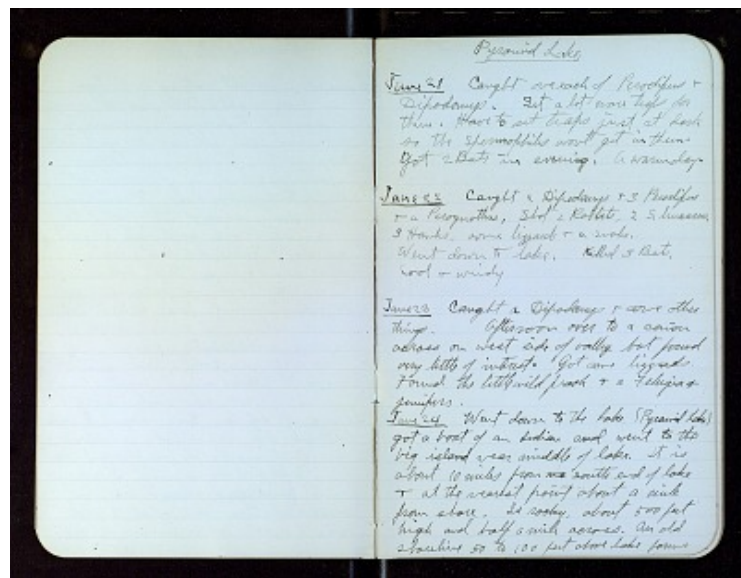 Pyramid Lake
June 21 Caught one each of Perodipus +
Dipodomys. Set a lot more traps for
them. Have to set traps just at dark
so the Spermophiles won't get in them
Got 2 Bats in evening. A warm day.
June 22 Caught a Dipodomys + 3 Perodipus
+ a Perognathus, Shot 2 Rabbits, 2 S.
3 Hawks, some lizards + a snake.
Went down to lake. Killed 3 Bats.
Cool + windy
June 23 Caught a Dipodomys + some other
things. Afternoon over to a canon
across on west side of valley but found
very little of interest. Got some lizzards
Found the little wild peach + a
June 24 Went down to the lake (Pyramid Lake)
got a boat of an Indian and went to the
big island near middle of lake. It is
about 10 miles from south end of lake
+ at the nearest point about a mile
from shore. Is rocky, about 500 feet
high and half a mile across. An old
shoreline 50 to 100 feet above lake forms